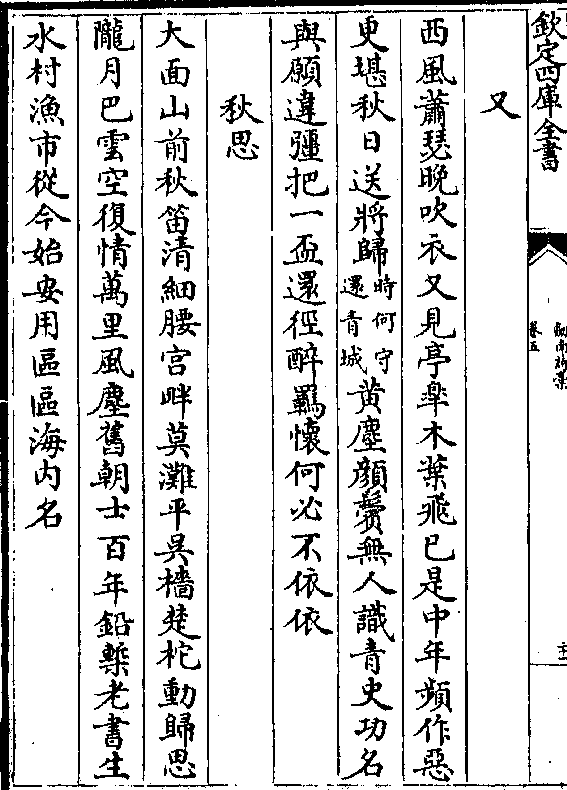 欽定四庫全書
劍南詩稾
卷五
十二
又
西風蕭瑟晚吹衣又見亭臯木葉飛已是中年頻作惡
更堪秋日送將歸時何守還青城黄塵顔鬢無人識青史功名
與願違彊把一盃還徑醉羈懷何必不依依
秋思
大面山前秋笛清細腰宫畔莫灘平吳檣楚柁動歸思
隴月巴雲空復情萬里風塵舊朝士百年鉛槧老書生
水村漁市從今始安用區區海内名